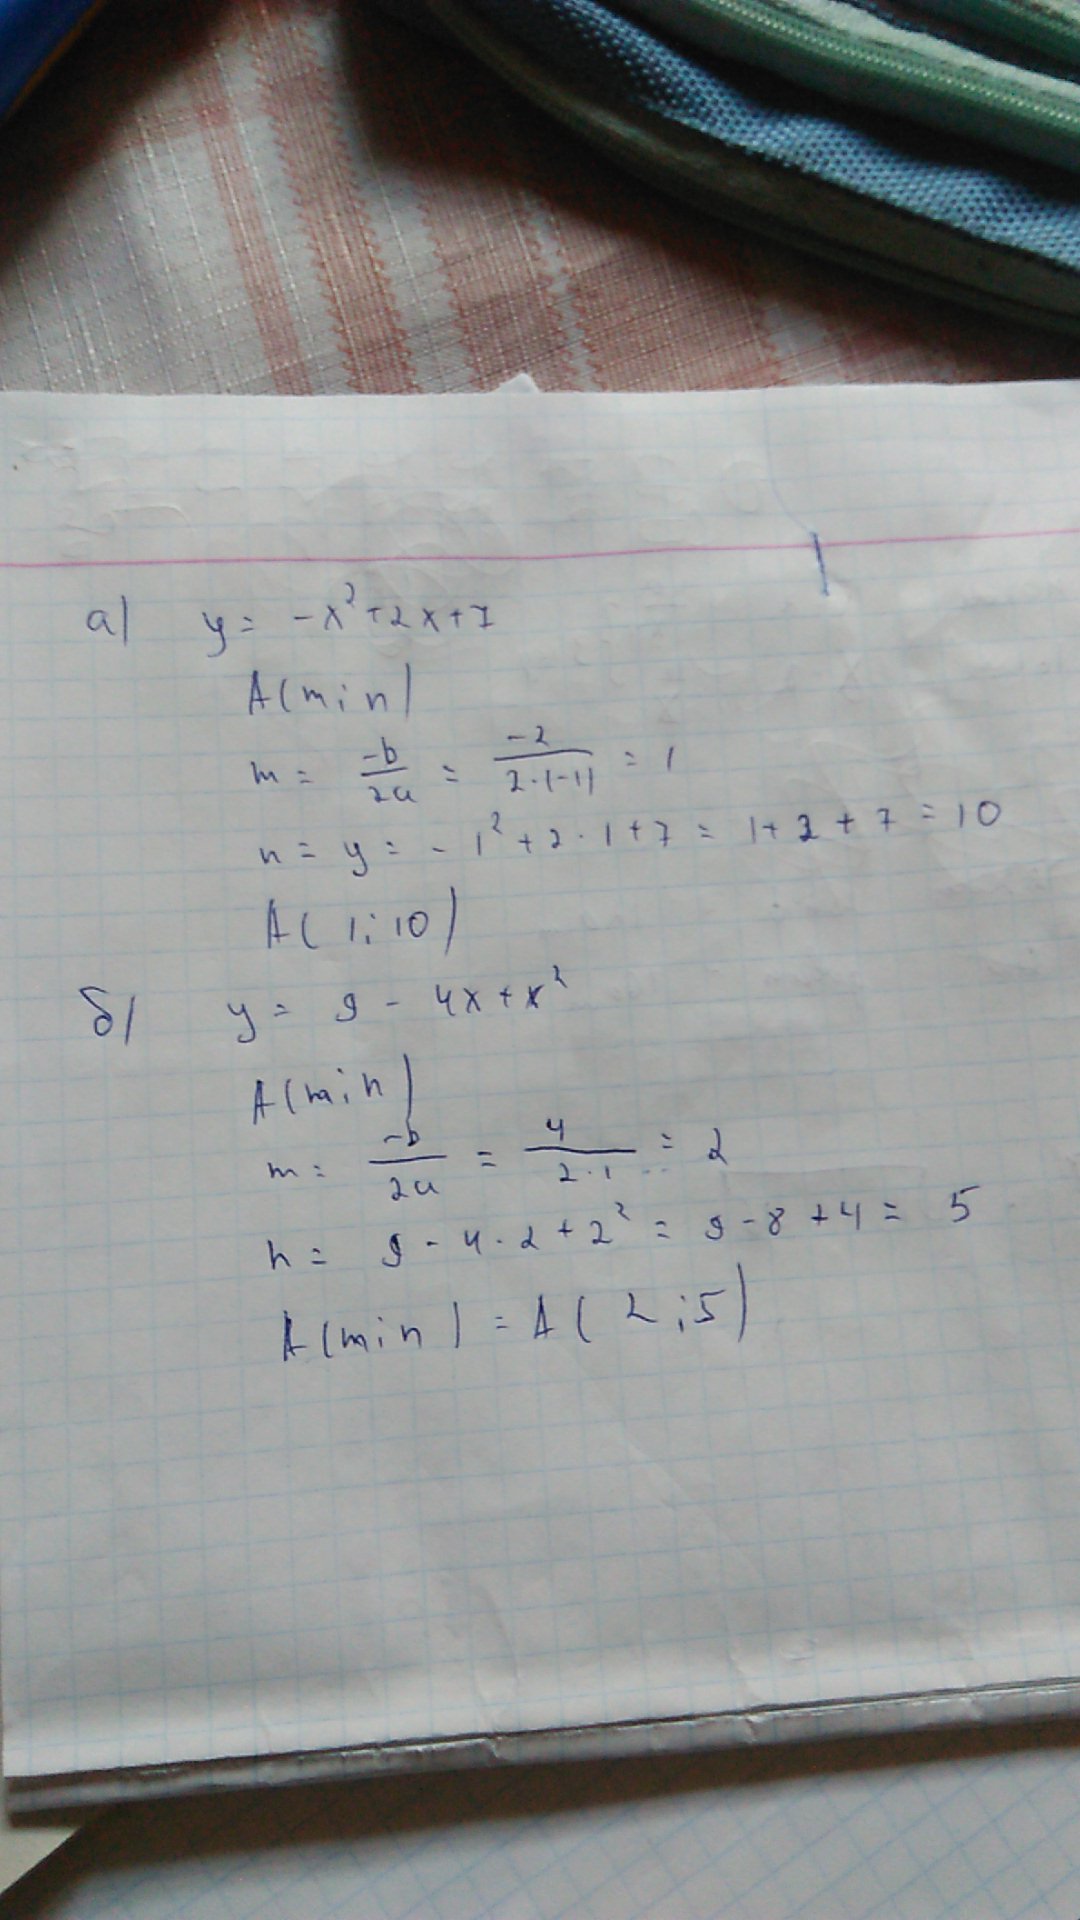 а) y = -x²+2x+7
A(m;n)
m = -b/2a = -2/2·(-1) = 1
n = y = -1²+2·1+7 = 1+2+7 = 10
A(1;10)
б) y = 9 - 4x+x²
A(m;n)
m = -b/2a = 4/2·1 = 2
n = 9 - 4·2+2² = 9-8+4 = 5
A(m;n) = A(2;5)